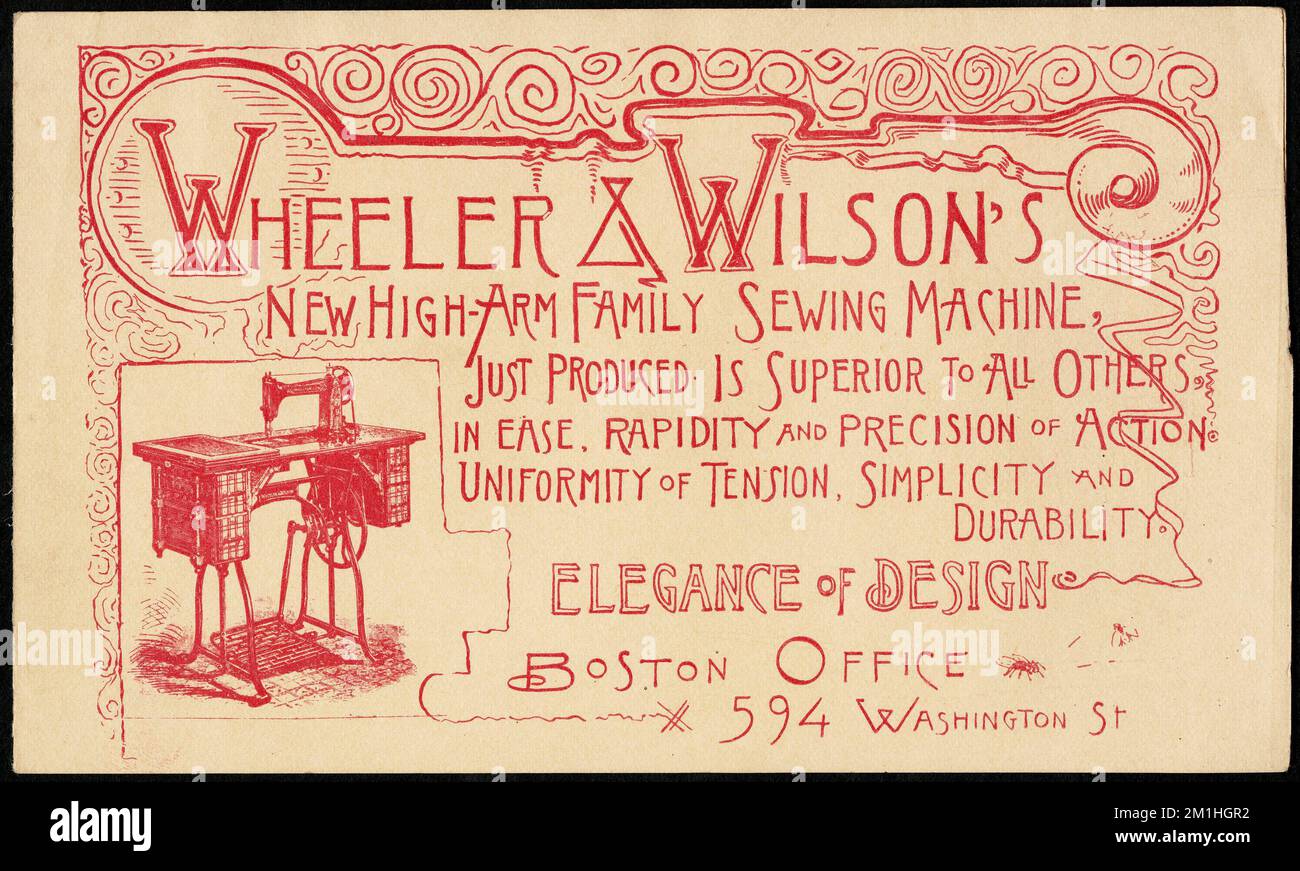 WHEELER & WILSON'S
NEW HIGH-ARM FAMILY SEWING MACHINE,
JUST PRODUCED. IS SUPERIOR TO ALL OTHERS,
IN EASE, RAPIDITY AND PRECISION OF ACTION.
UNIFORMITY OF TENSION, SIMPLICITY AND
DURABILITY.
ELEGANCE OF DESIGN
BOSTON OFFICE
594 WASHINGTON St
alamy
Image ID: 2M1HGR2
www.alamy.com